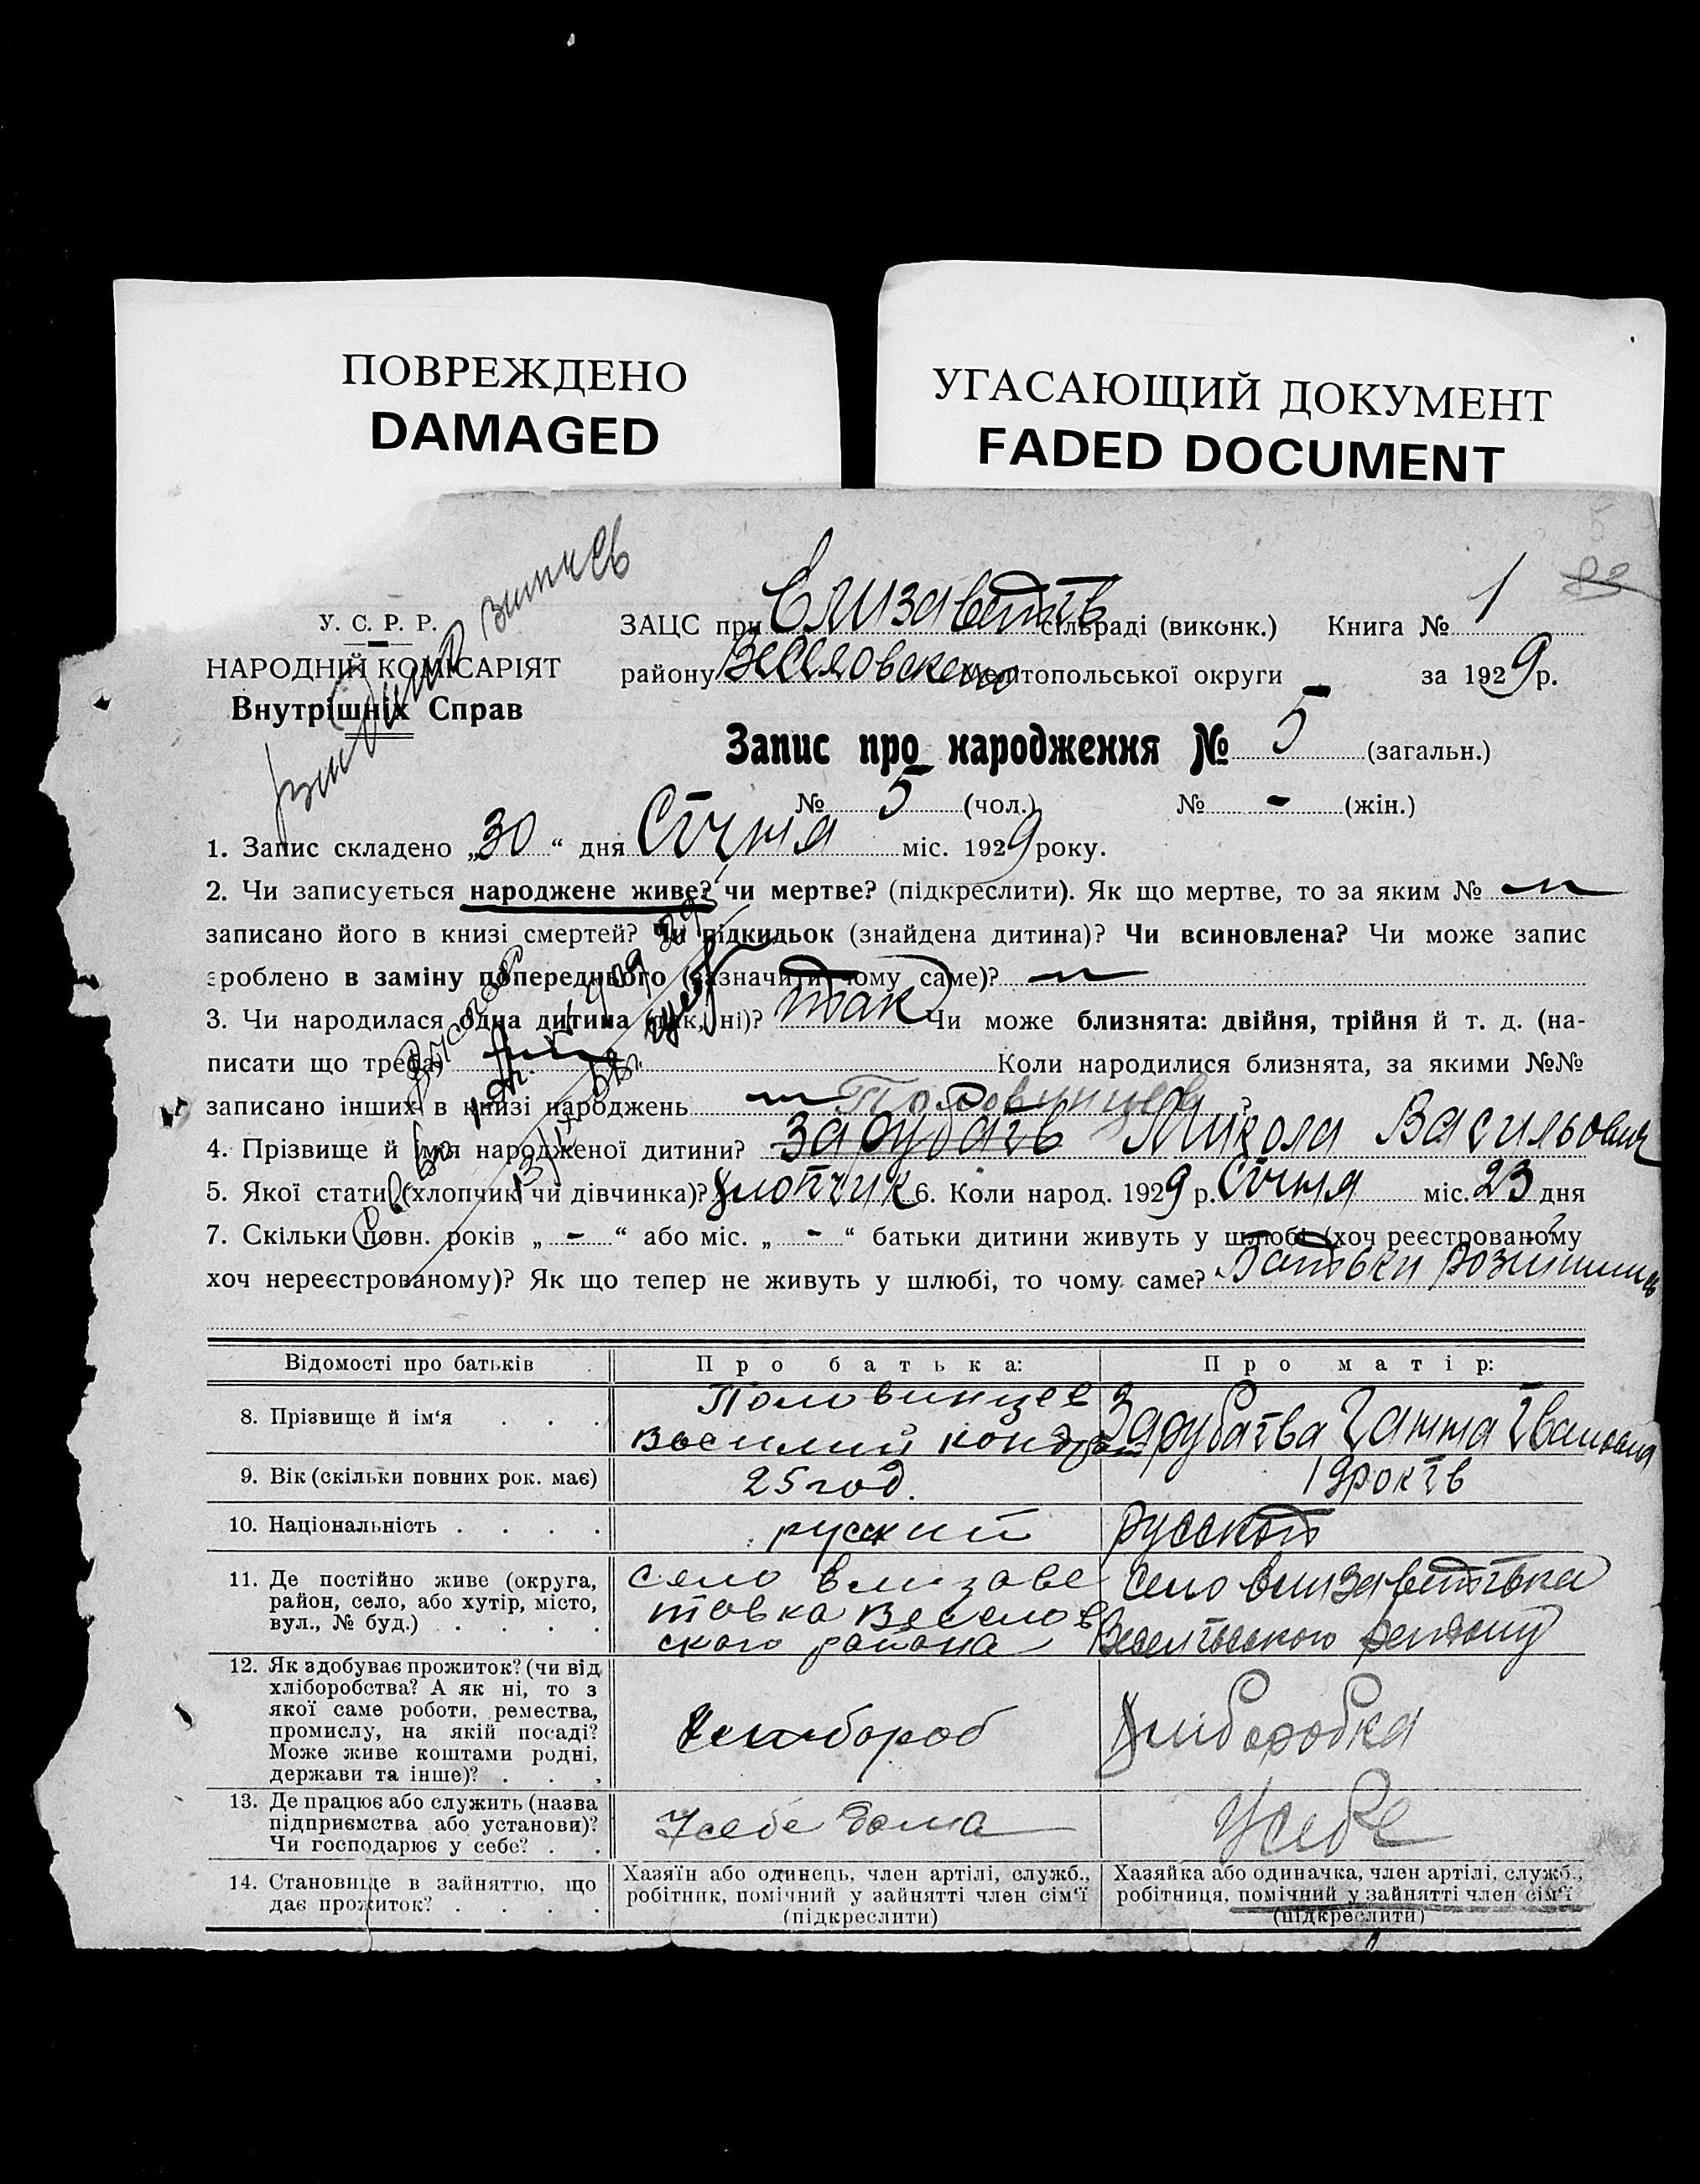 ПОВРЕЖДЕНО
DAMAGED
УГАСАЮЩИЙ ДОКУМЕНТ
FADED DOCUMENT
У. С. Р. Р.
НАРОДНІЙ КОМІСАРІЯТ
Внутрішніх Справ
витяг
ЗАЦС при Єлизаветів сільраді (виконк.) Книга № 1
району Веселовского Мелітопольської округи за 1929 р.
Запис про народження № 5 (загальн.)
№ 5 (чол.) № - (жін.)
1. Запис складено „30“ дня Січня міс. 1929 року.
2. Чи записується народжене живе? чи мертве? (підкреслити). Як що мертве, то за яким №
записано його в книзі смертей? Чи підкидьок (знайдена дитина)? Чи всиновлена? Чи може запис
зроблено в заміну попереднього (зазначити чому саме)?
3. Чи народилася одна дитина (так, ні)? так Чи може близнята: двійня, трійня й т. д. (на-
писати що треба) Коли народилися близнята, за якими №№
записано інших в книзі народжень ?
Половинцев
4. Прізвище й імя народженої дитини? Микола Васильович
5. Якої стати (хлопчик чи дівчинка)? хлопчик 6. Коли народ. 1929 р. Січня міс. 23 дня
7. Скільки повн. років „ - “ або міс. „ - “ батьки дитини живуть у шлюбі (хоч реєстрованому
хоч нереєстрованому)? Як що тепер не живуть у шлюбі, то чому саме? Батьки розійшлись
Відомості про батьків
Про батька:
Про матір:
8. Прізвище й ім‘я . . .
Половинцев
Василий
Зарубаїва Ганна Івановна
9. Вік (скільки повних рок. має)
25 год.
19 років
10. Національність . . . .
русский
русской
11. Де постійно живе (округа,
район, село, або хутір, місто,
вул., № буд.) . . . .
село Елизаве
товка Веселов
ского района
село Елизаветівка
Веселівського району
12. Як здобуває прожиток? (чи від
хліборобства? А як ні, то з
якої саме роботи, ремества,
промислу, на якій посаді?
Може живе коштами родні,
держави та інше)? . . .
Хлибороб
Хлиборобка
13. Де працює або служить (назва
підприємства або установи)?
Чи господарює у себе? . .
У себе дома
У себе
14. Становище в зайняттю, що
дає прожиток? . . . .
Хазяїн або одинець, член артілі, служб.,
робітник, помічний у зайнятті член сім‘ї
(підкреслити)
Хазяйка або одиначка, член артілі, служб.,
робітниця, помічний у зайнятті член сім‘ї
(підкреслити)